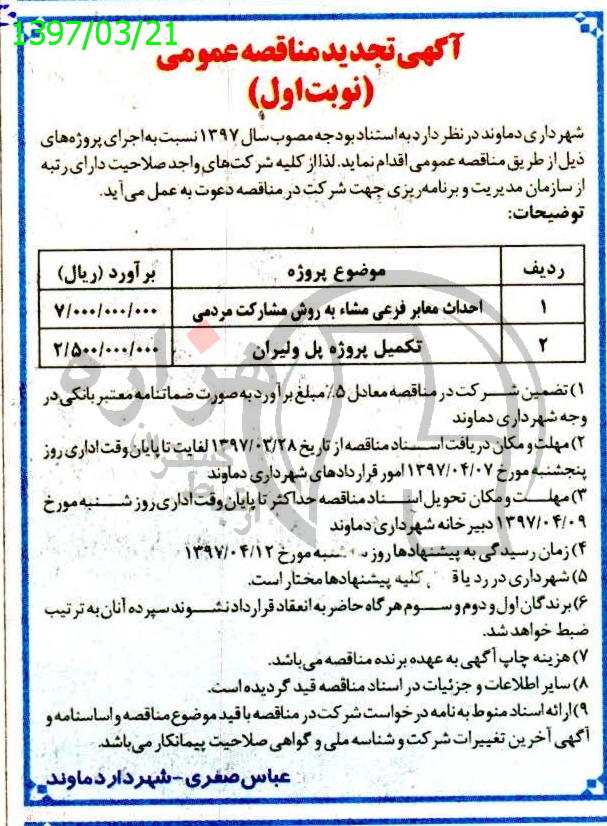 1397/03/21
آگهی تجدید مناقصه عمومی
(نوبت اول)
شهرداری دماوند در نظر دارد به استناد بودجه مصوب سال ۱۳۹۷ نسبت به اجرای پروژه‌های
ذیل از طریق مناقصه عمومی اقدام نماید. لذا از کلیه شرکت‌های واجد صلاحیت دارای رتبه
از سازمان مدیریت و برنامه‌ریزی جهت شرکت در مناقصه دعوت به عمل می‌آید.
توضیحات:
ردیف موضوع پروژه برآورد (ریال)
۱ احداث معابر فرعی مشاء به روش مشارکت مردمی ۷/۰۰۰/۰۰۰/۰۰۰
۲ تکمیل پروژه پل ولیران ۲/۵۰۰/۰۰۰/۰۰۰
۱) تضمین شرکت در مناقصه معادل ۵٪ مبلغ برآورد به صورت ضمانتنامه معتبر بانکی در
وجه شهرداری دماوند
۲) مهلت و مکان دریافت اسناد مناقصه از تاریخ ۱۳۹۷/۰۳/۲۸ لغایت تا پایان وقت اداری روز
پنجشنبه مورخ ۱۳۹۷/۰۴/۰۷ امور قراردادهای شهرداری دماوند
۳) مهلت و مکان تحویل اسناد مناقصه حداکثر تا پایان وقت اداری روز شنبه مورخ
۱۳۹۷/۰۴/۰۹ دبیرخانه شهرداری دماوند
۴) زمان رسیدگی به پیشنهادها روز سه‌شنبه مورخ ۱۳۹۷/۰۴/۱۲
۵) شهرداری در رد یا کلیه پیشنهادها مختار است.
۶) برندگان اول و دوم و سوم هرگاه حاضر به انعقاد قرارداد نشوند سپرده آنان به ترتیب
ضبط خواهد شد.
۷) هزینه چاپ آگهی به عهده برنده مناقصه می‌باشد.
۸) سایر اطلاعات و جزئیات در اسناد مناقصه قید گردیده است.
۹) ارائه اسناد منوط به نامه درخواست شرکت در مناقصه با قید موضوع مناقصه و اساسنامه و
آگهی آخرین تغییرات شرکت و شناسه ملی و گواهی صلاحیت پیمانکار می‌باشد.
عباس صفری - شهردار دماوند
هزاره